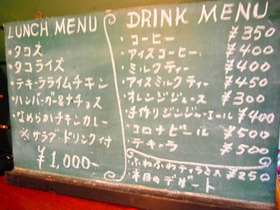 LUNCH MENU
・タコス
・タコライス
・テキーラライムチキン
・ハンバーガー&ナチョス
・なめらかチキンカレー
※サラダドリンク付
¥1,000~
DRINK MENU
・コーヒー ¥350
・アイスコーヒー ¥400
・ミルクティー ¥400
・アイスミルクティー ¥450
・オレンジジュース ¥300
・手作りジンジャーエール ¥400
・コロナビール ¥500
・テキーラ ¥500
・ふわふわティラミス ¥250
・本日のデザート